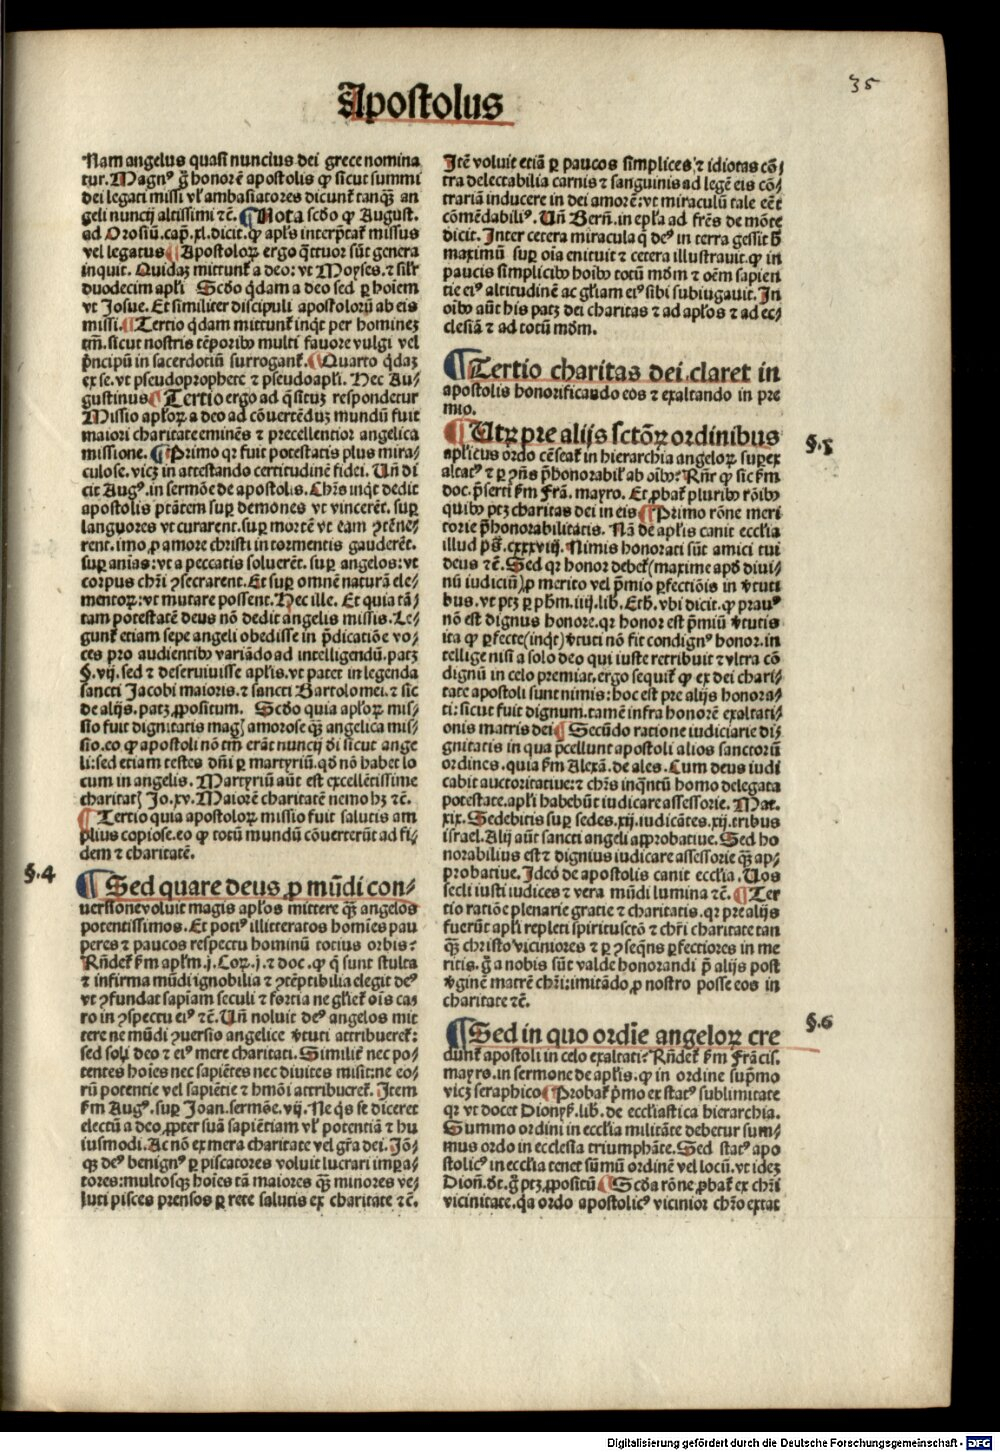 35
Apostolus
Nam angelus quasi nuncius dei grece nomina
tur. Magnꝰ g̃ honorẽ apostolis ꝙ sicut summi
dei legati missi vl᷒ ambasiatores dicunt᷒ tanqȝ an
geli nuncij altissimi ⁊c̃. ¶Nota scd̃o ꝙ August.
ad Orosiũ. cap̃. xl. dicit. ꝙ apl̃s interp̃tat᷒ missus
vel legatus ¶Apostoloꝝ ergo q̃ttuor sũt genera
inquit. Quidaȝ mittunt᷒ a deo: vt Moyses. ⁊ silr̃
duodecim apl̃i Scd̃o q̃dam a deo sed ꝑ hoĩem
vt Josue. Et similiter discipuli apostolorũ ab eis
missi. ¶Tertio q̃dam mittunt᷒ inq̃t per hominez
tm̃. sicut nostris tẽporibꝰ multi fauore vulgi vel
p̃ncipũ in sacerdotiũ surrogant᷒. ¶Quarto q̃daȝ
ex se. vt pseudoprophete ⁊ pseudoapl̃i. Hec Au⸗
gustinus ¶Tertio ergo ad q̃situȝ respondetur
Missio apl̃oꝝ a deo ad cõuertẽduȝ mundũ fuit
maiori charitate eminẽs ⁊ precellentior angelica
missione. ¶Primo qr fuit potestatis plus mira⸗
culose. vicȝ in attestando certitudinẽ fidei. Uñ di
cit Augꝰ. in sermõe de apostolis. Chr̃s inq̃t dedit
apostolis ptãtem suꝑ demones vt vincerẽt. suꝑ
languores vt curarent. suꝑ mortẽ vt eam ꝯtẽne⸗
rent. imo ꝓ amore christi in tormentis gauderẽt.
suꝑ aĩas: vt a peccatis soluerẽt. suꝑ angelos: vt
corpus chr̃i ꝯsecrarent. Et suꝑ omnẽ naturã ele⸗
mentoꝝ: vt mutare possent. Hec ille. Et quia tã⸗
tam potestatẽ deus nõ dedit angelis missis. Le⸗
gunt᷒ etiam sepe angeli obedisse in p̃dicatiõe vo⸗
ces pro audientibꝰ variãdo ad intelligendũ. patȝ
§. vij. sed ⁊ deseruiuisse apl̃is. vt patet in legenda
sancti Jacobi maioris. ⁊ sancti Bartolomei. ⁊ sic
de alijs. patȝ ꝓpositum. Scd̃o quia apl̃oꝝ mis⸗
sio fuit dignitatis magȷ amorose qȝ̃ angelica mis⸗
sio. eo ꝙ apostoli nõ tm̃ erãt nuncij d̃i sicut ange
li: sed etiam testes dñi ꝑ martyriũ. qd̃ nõ habet lo
cum in angelis. Martyriũ aũt est excellẽtissime
charitatȷ Jo. xv. Maiorẽ charitatẽ nemo hȝ ⁊c̃.
¶Tertio quia apostoloꝝ missio fuit salutis am
plius copiose. eo ꝙ totũ mundũ cõuerterũt ad fi⸗
dem ⁊ charitatẽ.
§.4
¶Sed quare deus ꝓ mũdi con⸗
uersione voluit magis apl̃os mittere qȝ̃ angelos
potentissimos. Et potiꝰ illitteratos homĩes pau
peres ⁊ paucos respectu hominũ totius orbis?
Rñdet᷒ ẜm apl̃m. j. Coꝝ. j. ⁊ doc. ꝙ q̃ sunt stulta
⁊ infirma mũdi ignobilia ⁊ ꝯtẽptibilia elegit deꝰ
vt ꝯfundat sapĩam seculi ⁊ fortia ne gl̃iet᷒ oĩs ca⸗
ro in ꝯspectu eiꝰ ⁊c̃. Uñ noluit deꝰ angelos mit
tere ne mũdi ꝯuersio angelice v̾tuti attribueret᷒:
sed soli deo ⁊ eiꝰ mere charitati. Similit᷒ nec po⸗
tentes hoĩes nec sapiẽtes nec diuites misit: ne eo⸗
rũ potentie vel sapiẽtie ⁊ hmõi attribueret᷒. Item
ẜm Augꝰ. suꝑ Joan. sermõe. vij. Ne q̃s se diceret
electũ a deo ꝓpter suã sapiẽtiam vl᷒ potentiã ⁊ hu
iusmodi. Ac nõ ex mera charitate vel gr̃a dei. Jõ⸗
qȝ deꝰ benignꝰ ꝑ piscatores voluit lucrari imꝑa⸗
tores: multosqȝ hoĩes tã maiores qȝ̃ minores ve⸗
luti pisces prensos ꝑ rete salutis ex charitate ⁊c̃.
Jtẽ voluit etiã ꝑ paucos simplices ⁊ idiotas cõ⸗
tra delectabilia carnis ⁊ sanguinis ad legẽ eis cõ⸗
trariã inducere in dei amorẽ: vt miraculũ tale eẽt
cõmẽdabiliꝰ. Uñ Berñ. in epl̃a ad fr̃es de mõte
dicit. Inter cetera miracula q̃ deꝰ in terra gessit h̾
maximũ suꝑ oĩa enituit ⁊ cetera illustrauit. ꝙ in
paucis simplicibꝰ hoĩbꝰ totũ mdm̃ ⁊ oẽm sapien
tie eiꝰ altitudinẽ ac gl̃iam eiꝰ sibi subiugauit. In
oĩbꝰ aũt his patȝ dei charitas ⁊ ad apl̃os ⁊ ad ec⸗
clesiã ⁊ ad totũ mdm̃.
¶Tertio charitas dei claret in
apostolis honorificando eos ⁊ exaltando in pre
mio.
§.5
¶Utꝝ pre alijs sctõꝝ ordinibus
apl̃icus ordo cẽseat᷒ in hierarchia angeloꝝ suꝑex
altatꝰ ⁊ ꝑ ꝯñs p̃honorabil᷒ ab oĩbꝰ? Rñr̃ ꝙ sic ẜm
doc. p̃serti ẜm Frã. mayro. Et ꝓbat᷒ pluribꝰ rõibꝰ
quibꝰ ptȝ charitas dei in eis ¶Primo rõne meri
torie p̃honorabilitatis. Nã de apl̃is canit eccl̃ia
illud p̃s. cxxxviij. Nimis honorati sũt amici tui
deus ⁊c̃. Sed qr honor debet᷒ (maxime apd̾ diui⸗
nũ iudiciũ) ꝓ merito vel p̃mio ꝑfectiõis in v̾tuti
bus. vt ptȝ ꝑ ph̃m. iiij. lib. Eth̃. vbi dicit. ꝙ prauꝰ
nõ est dignus honore. qr honor est p̃miũ v̾tutis
ita ꝙ ꝑfecte (inq̃t) v̾tuti nõ fit condignꝰ honor. in
tellige nisi a solo deo qui iuste retribuit ⁊ vltra cõ
dignũ in celo premiat. ergo sequit᷒ ꝙ ex dei chari⸗
tate apostoli sunt nimis: hoc est pre alijs honora⸗
ti: sicut fuit dignum. tamẽ infra honorẽ exaltati⸗
onis matris dei ¶Secũdo ratione iudiciarie di⸗
gnitatis in qua p̃cellunt apostoli alios sanctorũ
ordines. quia ẜm Alexã. de ales. Cum deus iudi
cabit auctoritatiue: ⁊ chr̃s inq̃ntũ homo delegata
potestate. apl̃i habebũt iudicare assessorie. Mat.
xix. Sedebitis suꝑ sedes. xij. iudicãtes. xij. tribus
israel. Alij aũt sancti angeli approbatiue. Sed ho
norabilius est ⁊ dignius iudicare assessorie qȝ̃ ap⸗
probatiue. Ideo de apostolis canit eccl̃ia. Uos
secli iusti iudices ⁊ vera mũdi lumina ⁊c̃. ¶Ter
tio ratiõe plenarie gratie ⁊ charitatis. qr pre alijs
fuerũt apl̃i repleti spiritusctõ ⁊ chr̃i charitate tan
qȝ̃ christo viciniores ⁊ ꝑ ꝯseq̃ns ꝑfectiores in me
ritis. g̃ a nobis sũt valde honorandi p̃ alijs post
v̾ginẽ matrẽ chr̃i: imitãdo ꝓ nostro posse eos in
charitate ⁊c̃.
§.6
¶Sed in quo ordĩe angeloꝝ cre
dunt᷒ apostoli in celo exaltati? Rñdet᷒ ẜm Frãcis.
mayrs. in sermone de apl̃is. ꝙ in ordine sup̃mo
vicȝ seraphico ¶Probat᷒ p̃mo ex statꝰ sublimitate
qr vt docet Dionyẜ. lib. de eccl̃iastica hierarchia.
Summo ordini in eccl̃ia militãte debetur sum⸗
mus ordo in ecclesia triumphãte. Sed statꝰ apo
stolicꝰ in eccl̃ia tenet sũmũ ordinẽ vel locũ. vt ideȝ
Dioñ. d̃t. g̃ ptȝ ꝓpositũ ¶Scd̃a rõne ꝓbat᷒ ex chr̃i
vicinitate. q̃a ordo apostolicꝰ vicinior chr̃o extat
Digitalisierung gefördert durch die Deutsche Forschungsgemeinschaft - DFG